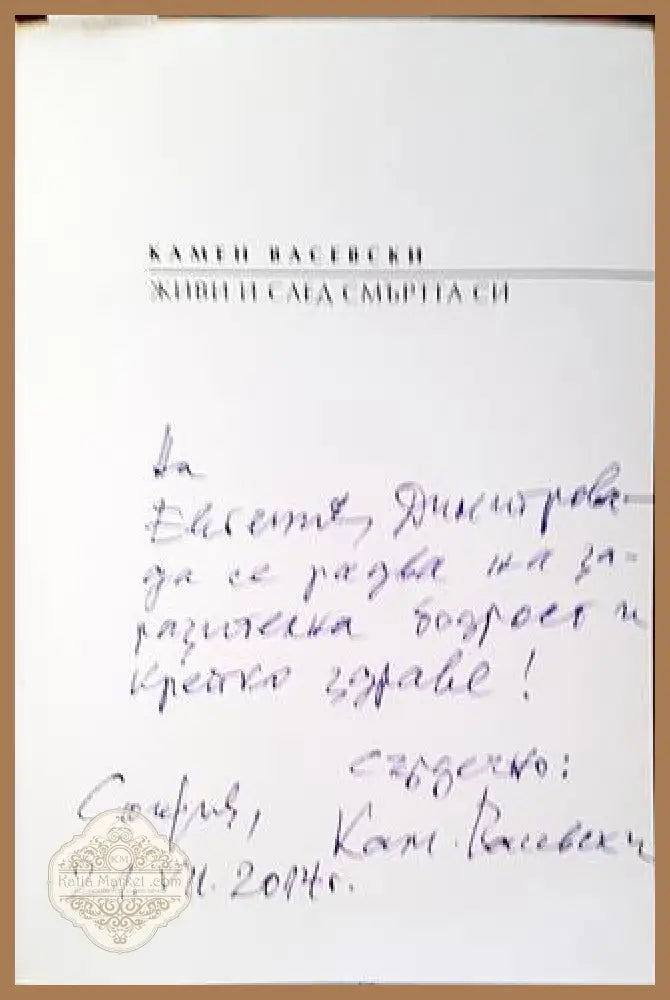 КАМЕН ВАСЕВСКИ
ЖИВИ И СЛЕД СМЪРТТА СИ
На
Евгения Димитрова
да се радва на за-
разителна бодрост и
крепко здраве!
сърдечно:
София, Кам. Васевски
VII. 2014г.
KM
Katia Market .com